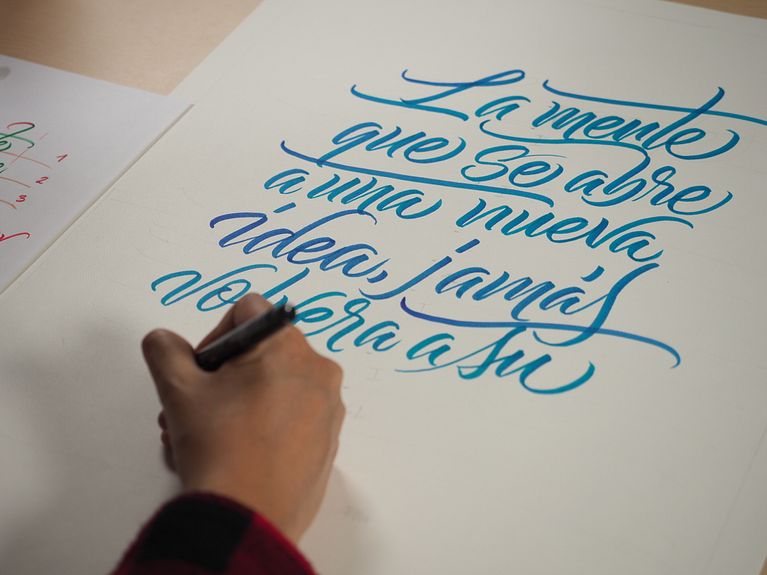 La mente
que se abre
a una nueva
idea, jamás
volverá a su
1
2
3